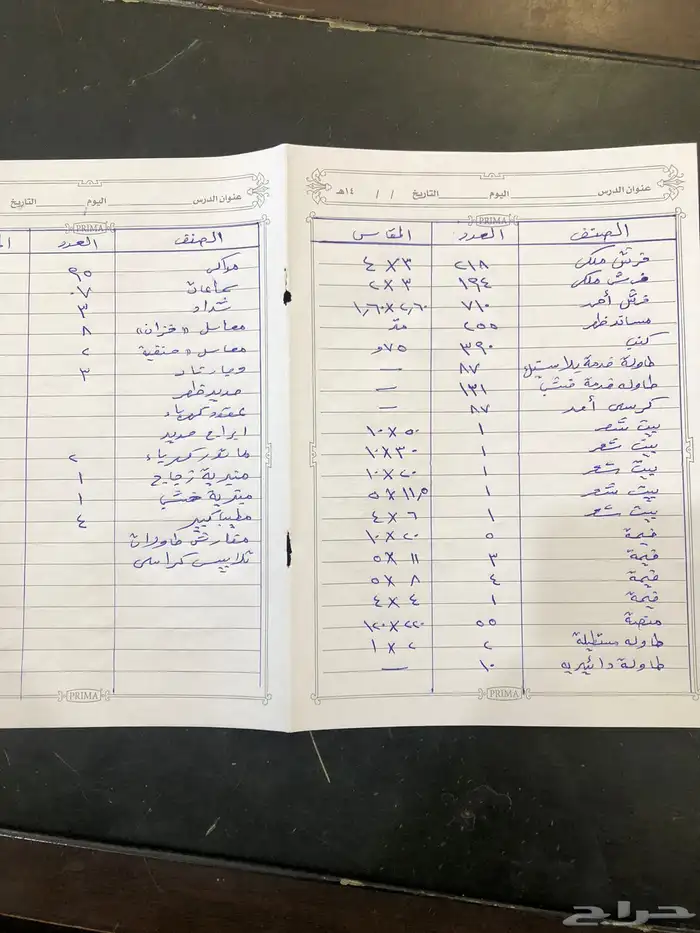 عنوان الدرس اليوم التاريخ / / ١٤هـ
PRIMA
الصنف العدد المقاس
فرش ملكي ٢١٨ ٣ × ٤
فرش ملكي ١٩٤ ٣ × ٢
فرش أحمر ٧١٠ ٢,٦٠ × ١,٦٠
مساند ظهر ٢٥٥ متر
كنب ٣٩٠ ٧٥و
طاولة خدمة بلاستيك ٨٧ —
طاوله خدمة خشب ١٣١ —
كرسي أحمر ٨٧ —
بيت شعر ١ ٥٠ × ١٠
بيت شعر ١ ٣٠ × ١٠
بيت شعر ١ ٢٠ × ١٠
بيت شعر ١ ١١,٥ × ٥
بيت شعر ١ ٦ × ٤
خيمة ٥ ٢٠ × ١٠
خيمة ٣ ١١ × ٥
خيمة ٤ ٨ × ٥
خيمة ١ ٤ × ٤
منصة ٥٥ ٢٢٠ × ١٢٠
طاوله مستطيلة ٢ ٢ × ١
طاولة دائيريه ١٠ —
PRIMA
عنوان الدرس اليوم التاريخ
PRIMA
الصنف العدد
مراكي ٩٥
سماعات ٠٧
شداد ٣
مغاسل «خزان» ٨
مغاسل «حنفية» ٢
٣
حديد ظهر
عقود كهرباء
ابراج حديد
كهرباء ٢
زجاج ١
خشب ١
كبير ٤
مفارش طاولات
تلابيس كراسي
PRIMA
حراج